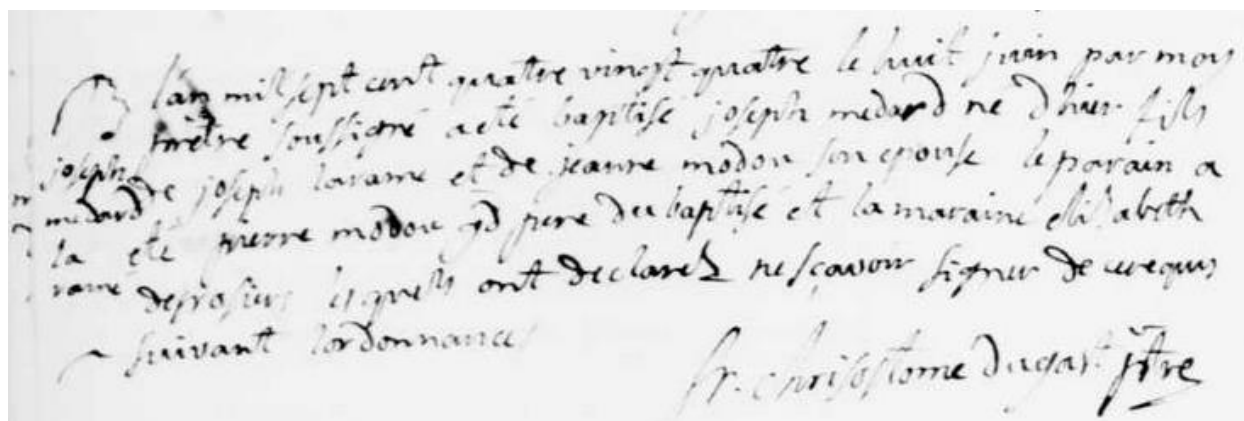 B
joseph
medard
la
rame
lan mil sept cent quatre vingt quatre le huit juin par moy
pretre soussigné a eté baptisé joseph medard né dhier fils
de joseph larame et de jeanne modou son epouse le parain a
eté pierre modou gd pere du baptisé et la maraine elisabeth
desrosiers lesquels ont declarez ne sçavoir signer de ce requis
suivant lordonnance
fr. Chrisostome Dugast ptre